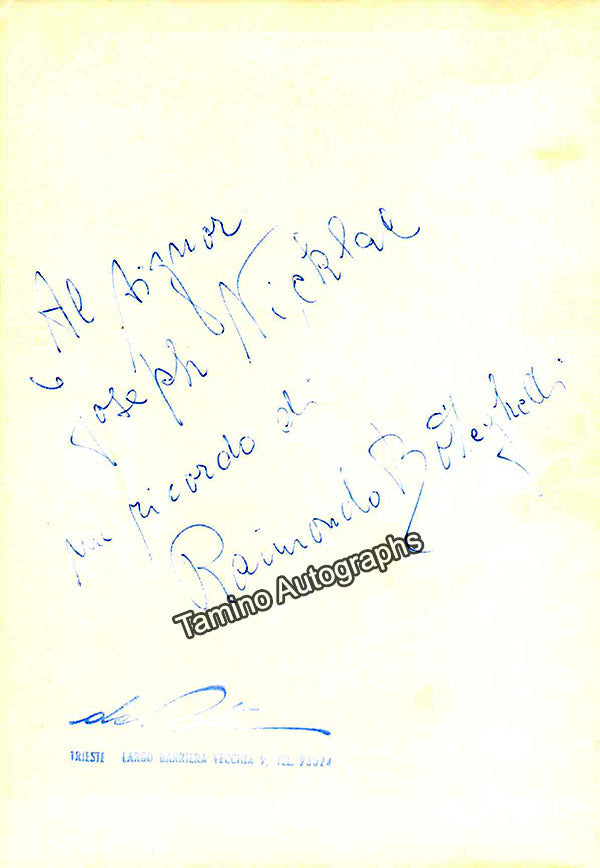 Al signor
Joseph Nicklal
un ricordo di
Raimondo Botteghelli
Tamino Autographs
de
TRIESTE LARGO BARRIERA VECCHIA 9, TEL.